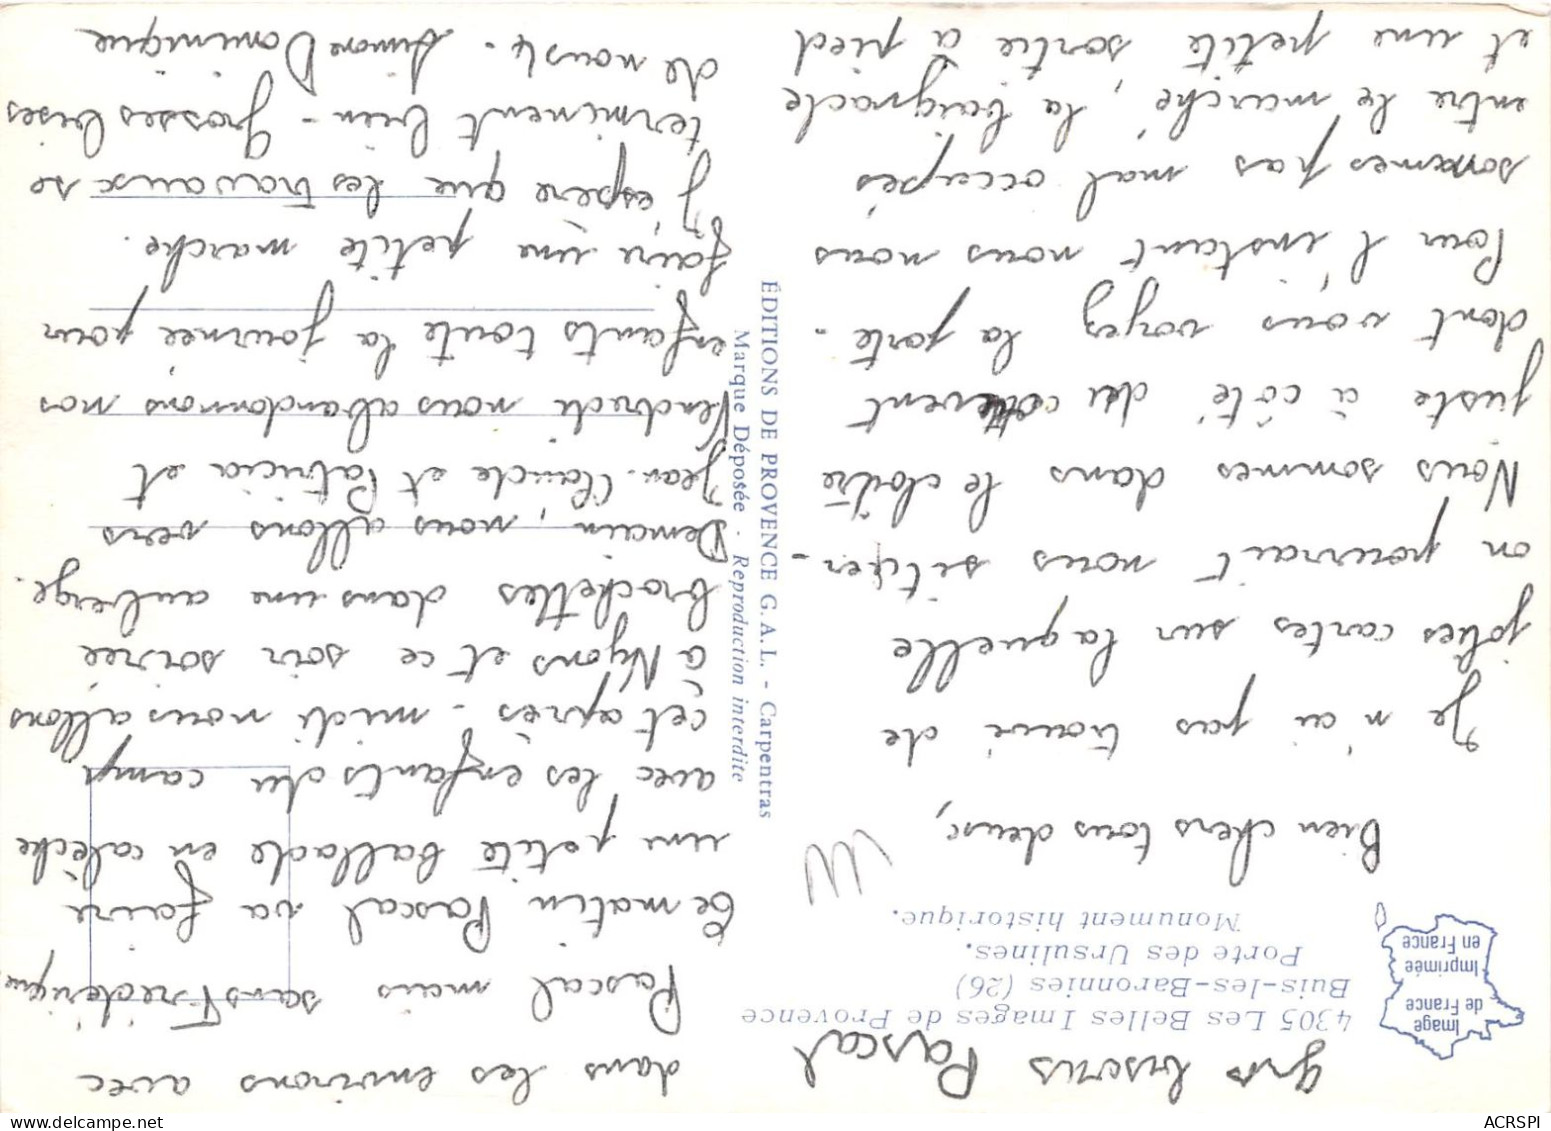 4305 Les Belles Images de Provence
Buis-les-Baronnies (26)
Porte des Ursulines.
Monument historique.
Image
de France
Imprimée
en France
ÉDITIONS DE PROVENCE G. A. L. - Carpentras
Marque Déposée - Reproduction interdite
Bien chers tous deux,
Je n'ai pas trouvé de
jolies cartes sur laquelle
on pourrait nous situer -
Nous sommes dans le cloître
juste à côté du couvent
dont vous voyez la porte -
Pour l'instant nous nous
sommes pas mal occupés
entre le marché, la baignade
et une petite sortie à pied
dans les environs avec
Pascal mais sans Frédérique
Ce matin Pascal va faire
une petite ballade en calèche
avec les enfants du camp
cet après-midi nous allons
à Nyons et ce soir soirée
brochettes dans une auberge.
Demain, nous allons vers
Jean-Claude et Patricia et
Vendredi nous abandonnons nos
enfants toute la journée pour
faire une petite marche.
J'espère que les travaux se
terminent bien - Grosses bises
de nous 4 - Simone Dominique
gros bisous Pascal
ACRSPI